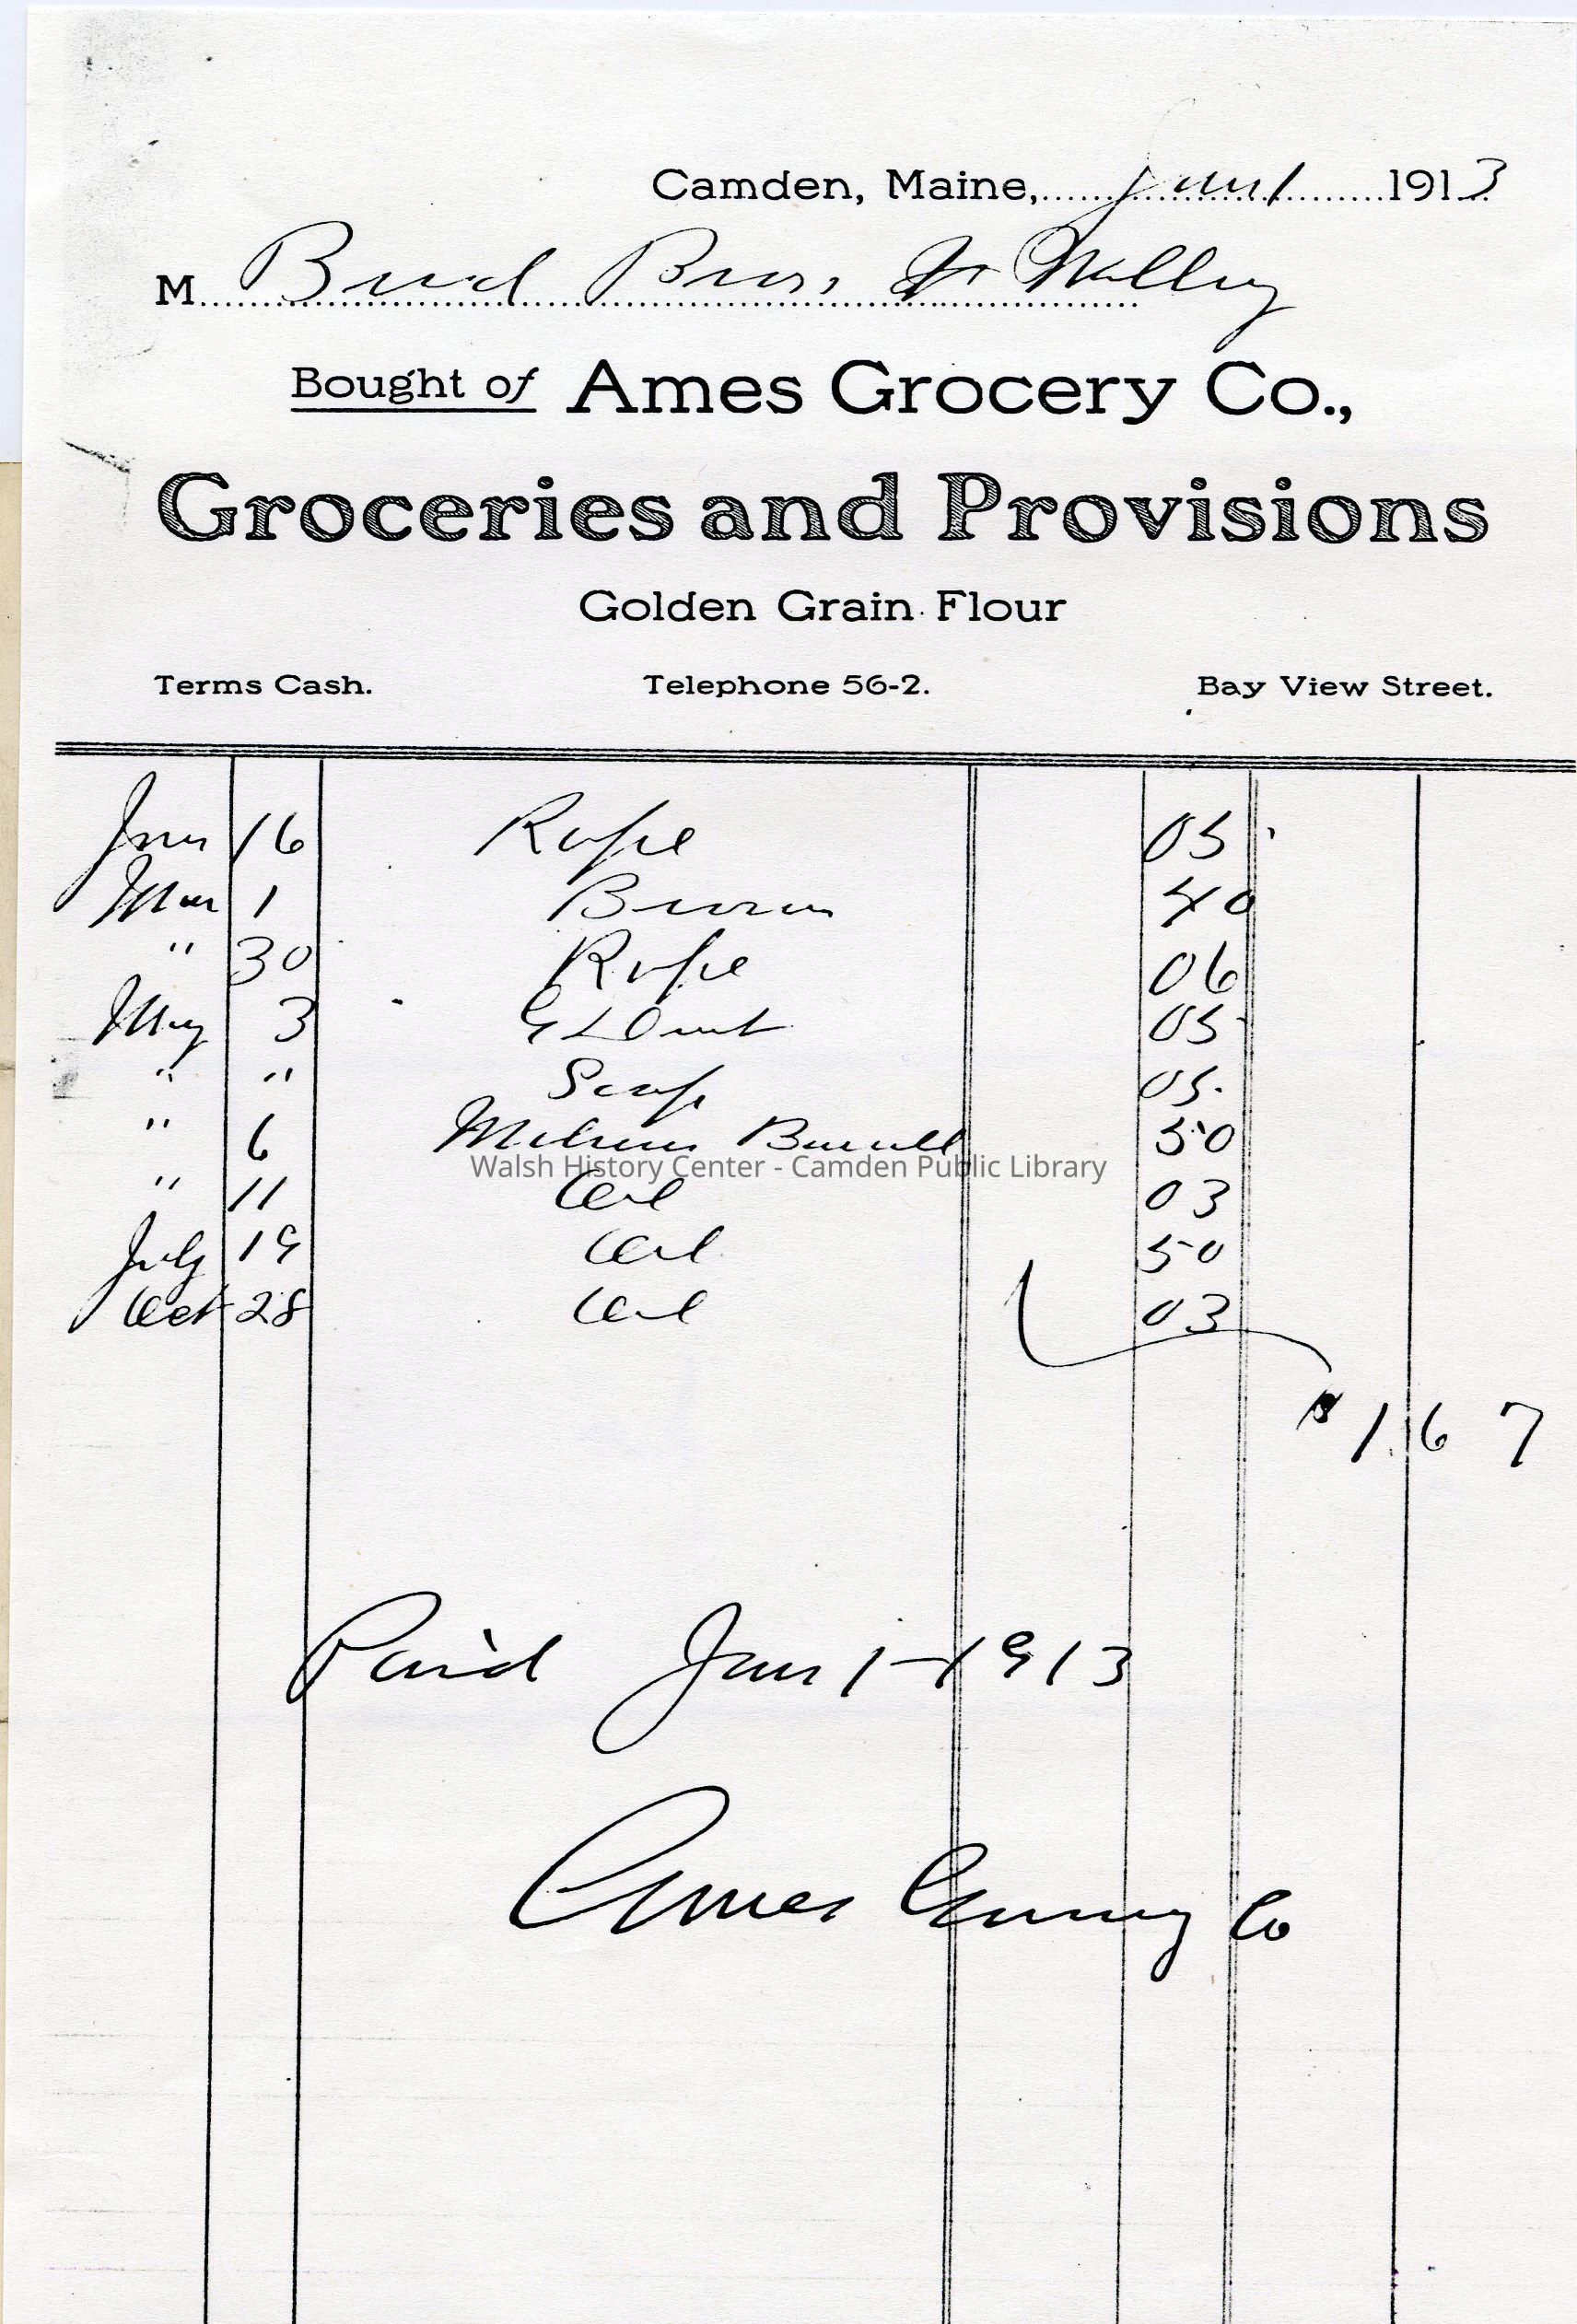 Camden, Maine, Jan 1 1913
M Bird Bros. & Willey
Bought of Ames Grocery Co.,
Groceries and Provisions
Golden Grain Flour
Terms Cash. Telephone 56-2. Bay View Street.
Jan 16 Rope 05
Mar 1 Broom 40
" 30 Rope 06
May 3 05
" " Soap 05.
" 6 50
Walsh History Center - Camden Public Library
" 11 Oil 03
July 19 Oil 50
Oct 28 Oil 03
$1.67
Paid Jan 1-1913
Ames Grocery Co